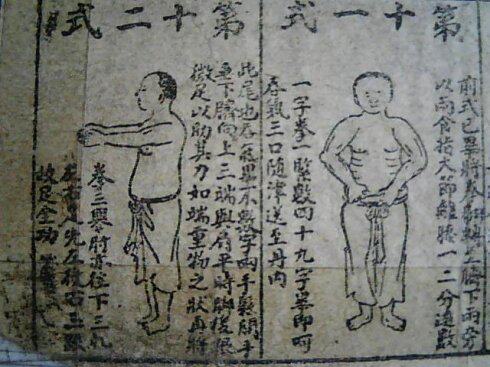 第十一式
前式已畢將拳翻轉上臍下兩旁
以兩食指大節腰一二分過數
一字拳一緊數四十九字畢即呵
吞氣三口隨津送至丹內
第十二式
此尾也吞氣畢不數字兩手鬆開手
垂下臍向上三端與肩平時腳後根
微足以助其力如端重物之狀再將
拳三舉肘直往下三
左右足先左後右三
收足全功